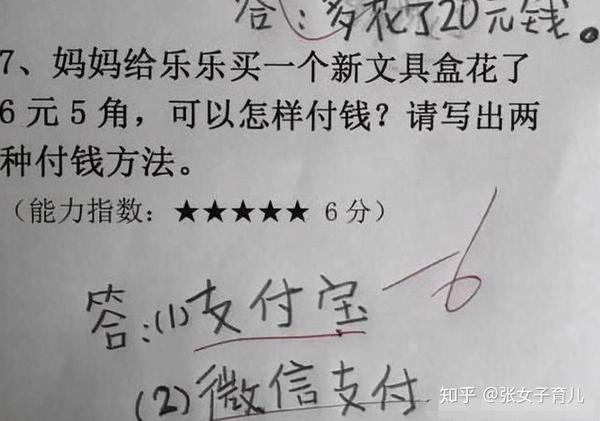 答：多花了20元钱。
7、妈妈给乐乐买一个新文具盒花了
6元5角，可以怎样付钱？请写出两
种付钱方法。
（能力指数：★★★★★ 6分）
-6
答：(1)支付宝
(2)微信支付
知乎 @张女子育儿